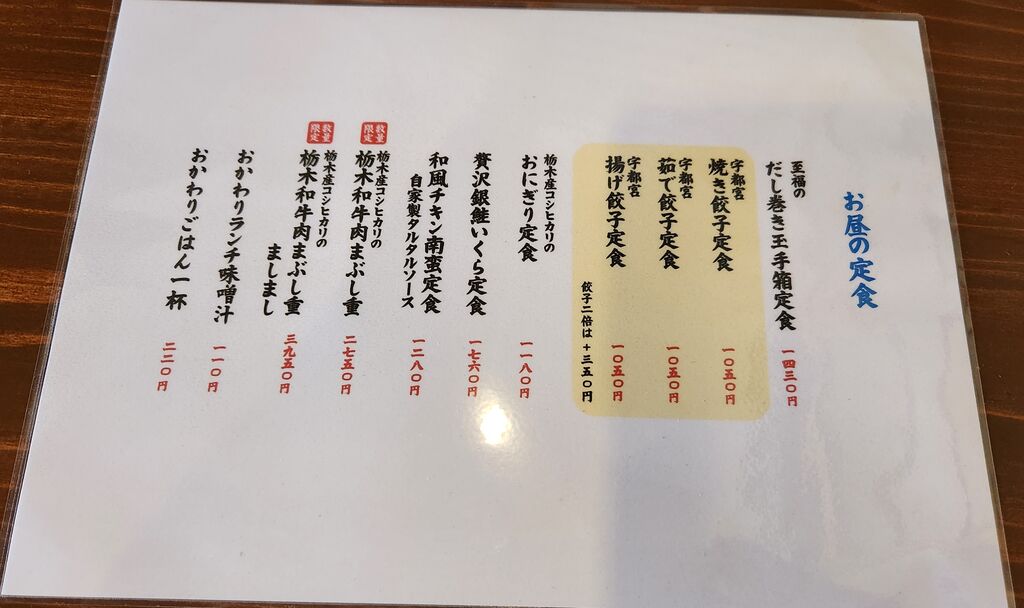 お昼の定食
至福の
だし巻き玉手箱定食
一四三〇円
宇都宮
焼き餃子定食
一〇五〇円
宇都宮
茹で餃子定食
一〇五〇円
宇都宮
揚げ餃子定食
一〇五〇円
餃子二倍は+三五〇円
栃木産コシヒカリの
おにぎり定食
一一八〇円
贅沢銀鮭いくら定食
一七六〇円
和風チキン南蛮定食
自家製タルタルソース
一二八〇円
数量限定
栃木産コシヒカリの
栃木和牛肉まぶし重
二七五〇円
数量限定
栃木産コシヒカリの
栃木和牛肉まぶし重
ましまし
三九五〇円
おかわりランチ味噌汁
一一〇円
おかわりごはん一杯
二二〇円